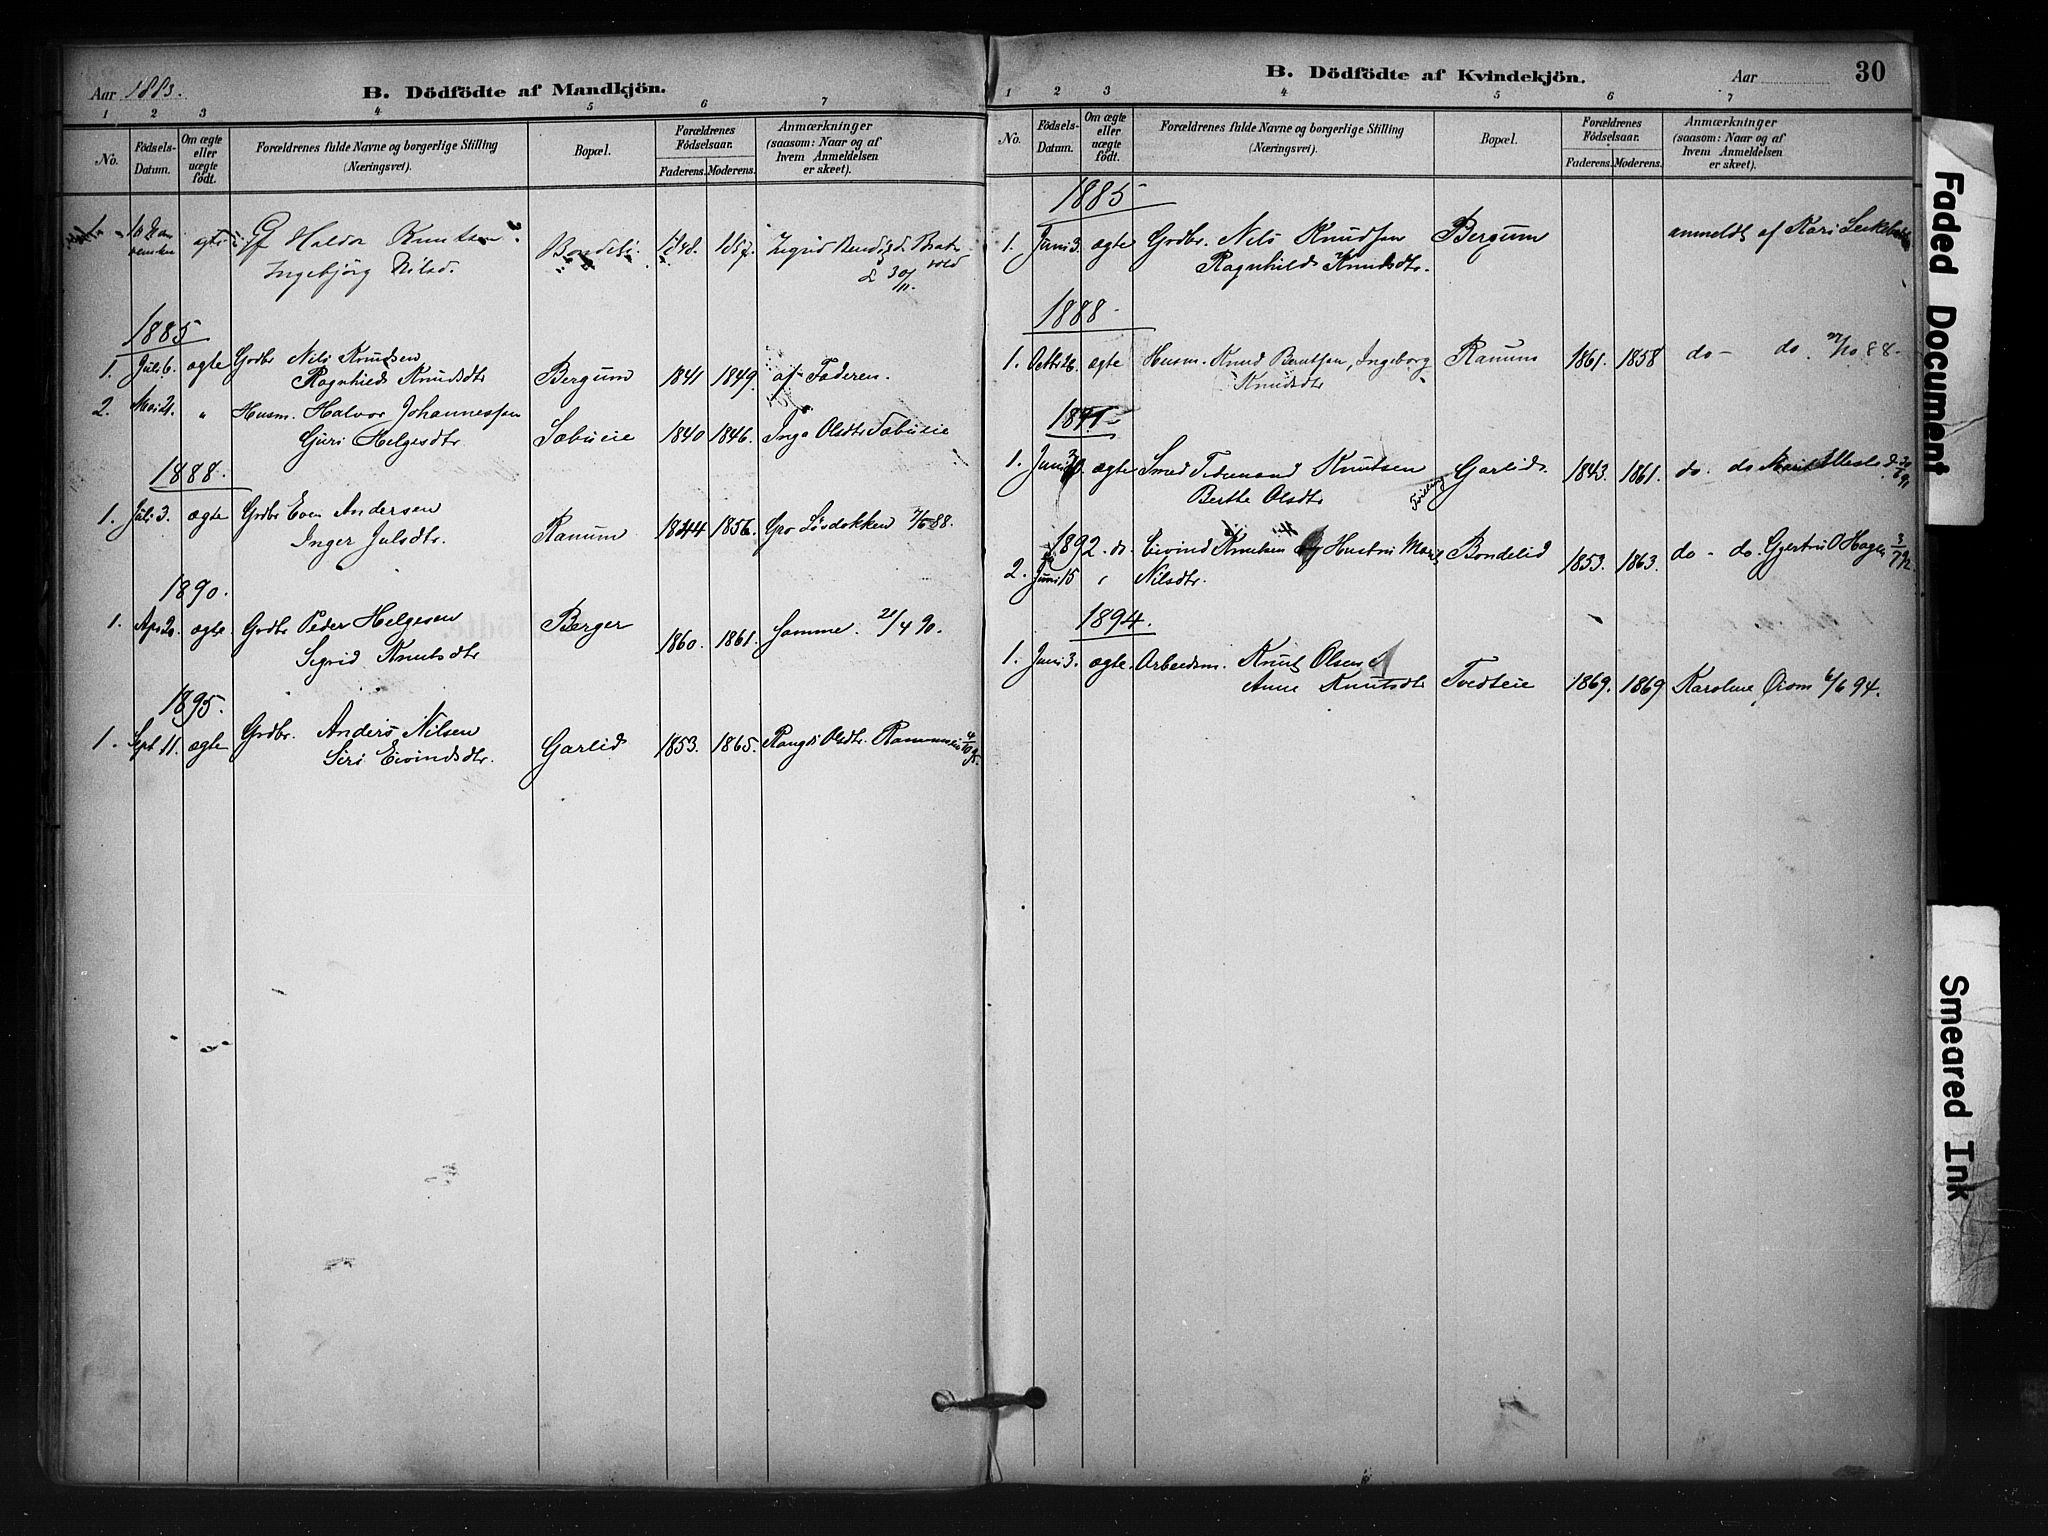 Aar 1883.
B. Dödfödte af Mandkjön.
1 2 3 4 5 6 7
No.
Födsels-Datum.
Om ægte eller uægte födt.
Forældrenes fulde Navne og borgerlige Stilling
(Næringsvei).
Bopæl.
Forældrenes Födselsaar.
Faderens. Moderens.
Anmærkninger
(saasom: Naar og af
hvem Anmeldelsen
er skeet).
Knutsen
Ingebjörg Nilsd. 30/11.
1885
1. Juli 6. ægte Grdbr Nils Knudsen
Ragnhild Knudsdtr Bergum 1841 1849. af Faderen.
2. Mai 21. " Husm. Halvor Johannessen
Guri Helgesdtr Sæbueie 1840 1846. Inga Olsdtr Sæbueie
1888.
1. Juli 3. ægte Grdbr Even Andersen
Inger Julsdtr. Ranum 1844 1856. Gro 88.
1890.
1. Apr 20. ægte. Grdbr Peder Helgesen
Sigrid Knutsdtr Berger 1860. 1861. Samme. 21/4 90.
1895.
1. Sept 11. ægte Grdbr. Anders Nilsen
Siri Eivindsdtr. Garlid 1853. 1865. Olsdtr. 4/10 95.
B. Dödfödte af Kvindekjön.
Aar
30
1 2 3 4 5 6 7
No.
Födsels-Datum.
Om ægte eller uægte födt.
Forældrenes fulde Navne og borgerlige Stilling
(Næringsvei).
Bopæl.
Forældrenes Födselsaar.
Faderens. Moderens.
Anmærkninger
(saasom: Naar og af
hvem Anmeldelsen
er skeet).
1885
1. Juni 3. ægte Grdbr. Nils Knudsen Bergum anmeldt af Kari
Ragnhild Knudsdtr.
1888
1. Octbr 26. ægte Husm. Knud Bentsen, Ingeborg Ranum 1861. 1858 do - do. 27/10 88.
Knudsdtr
1891
1. Juni ægte Smed Tidemand Knutsen Garlid. 1843. 1861. do. do Marit
Berthe Olsdtr
Tvilling
1892. do. Eivind Knutsen og Hustru Marit Bondelid 1853. 1863. do - do. Gjertru O Hagen 3/7 92.
2. Juni 15 " Nilsdtr.
1894.
1. Juni 3. ægte. Arbeidsm. Knut Olsen
Anne Knutsdtr Tvedteie 1869. 1869 Karoline Ørom 6/6 94.
Faded Document
Smeared Ink